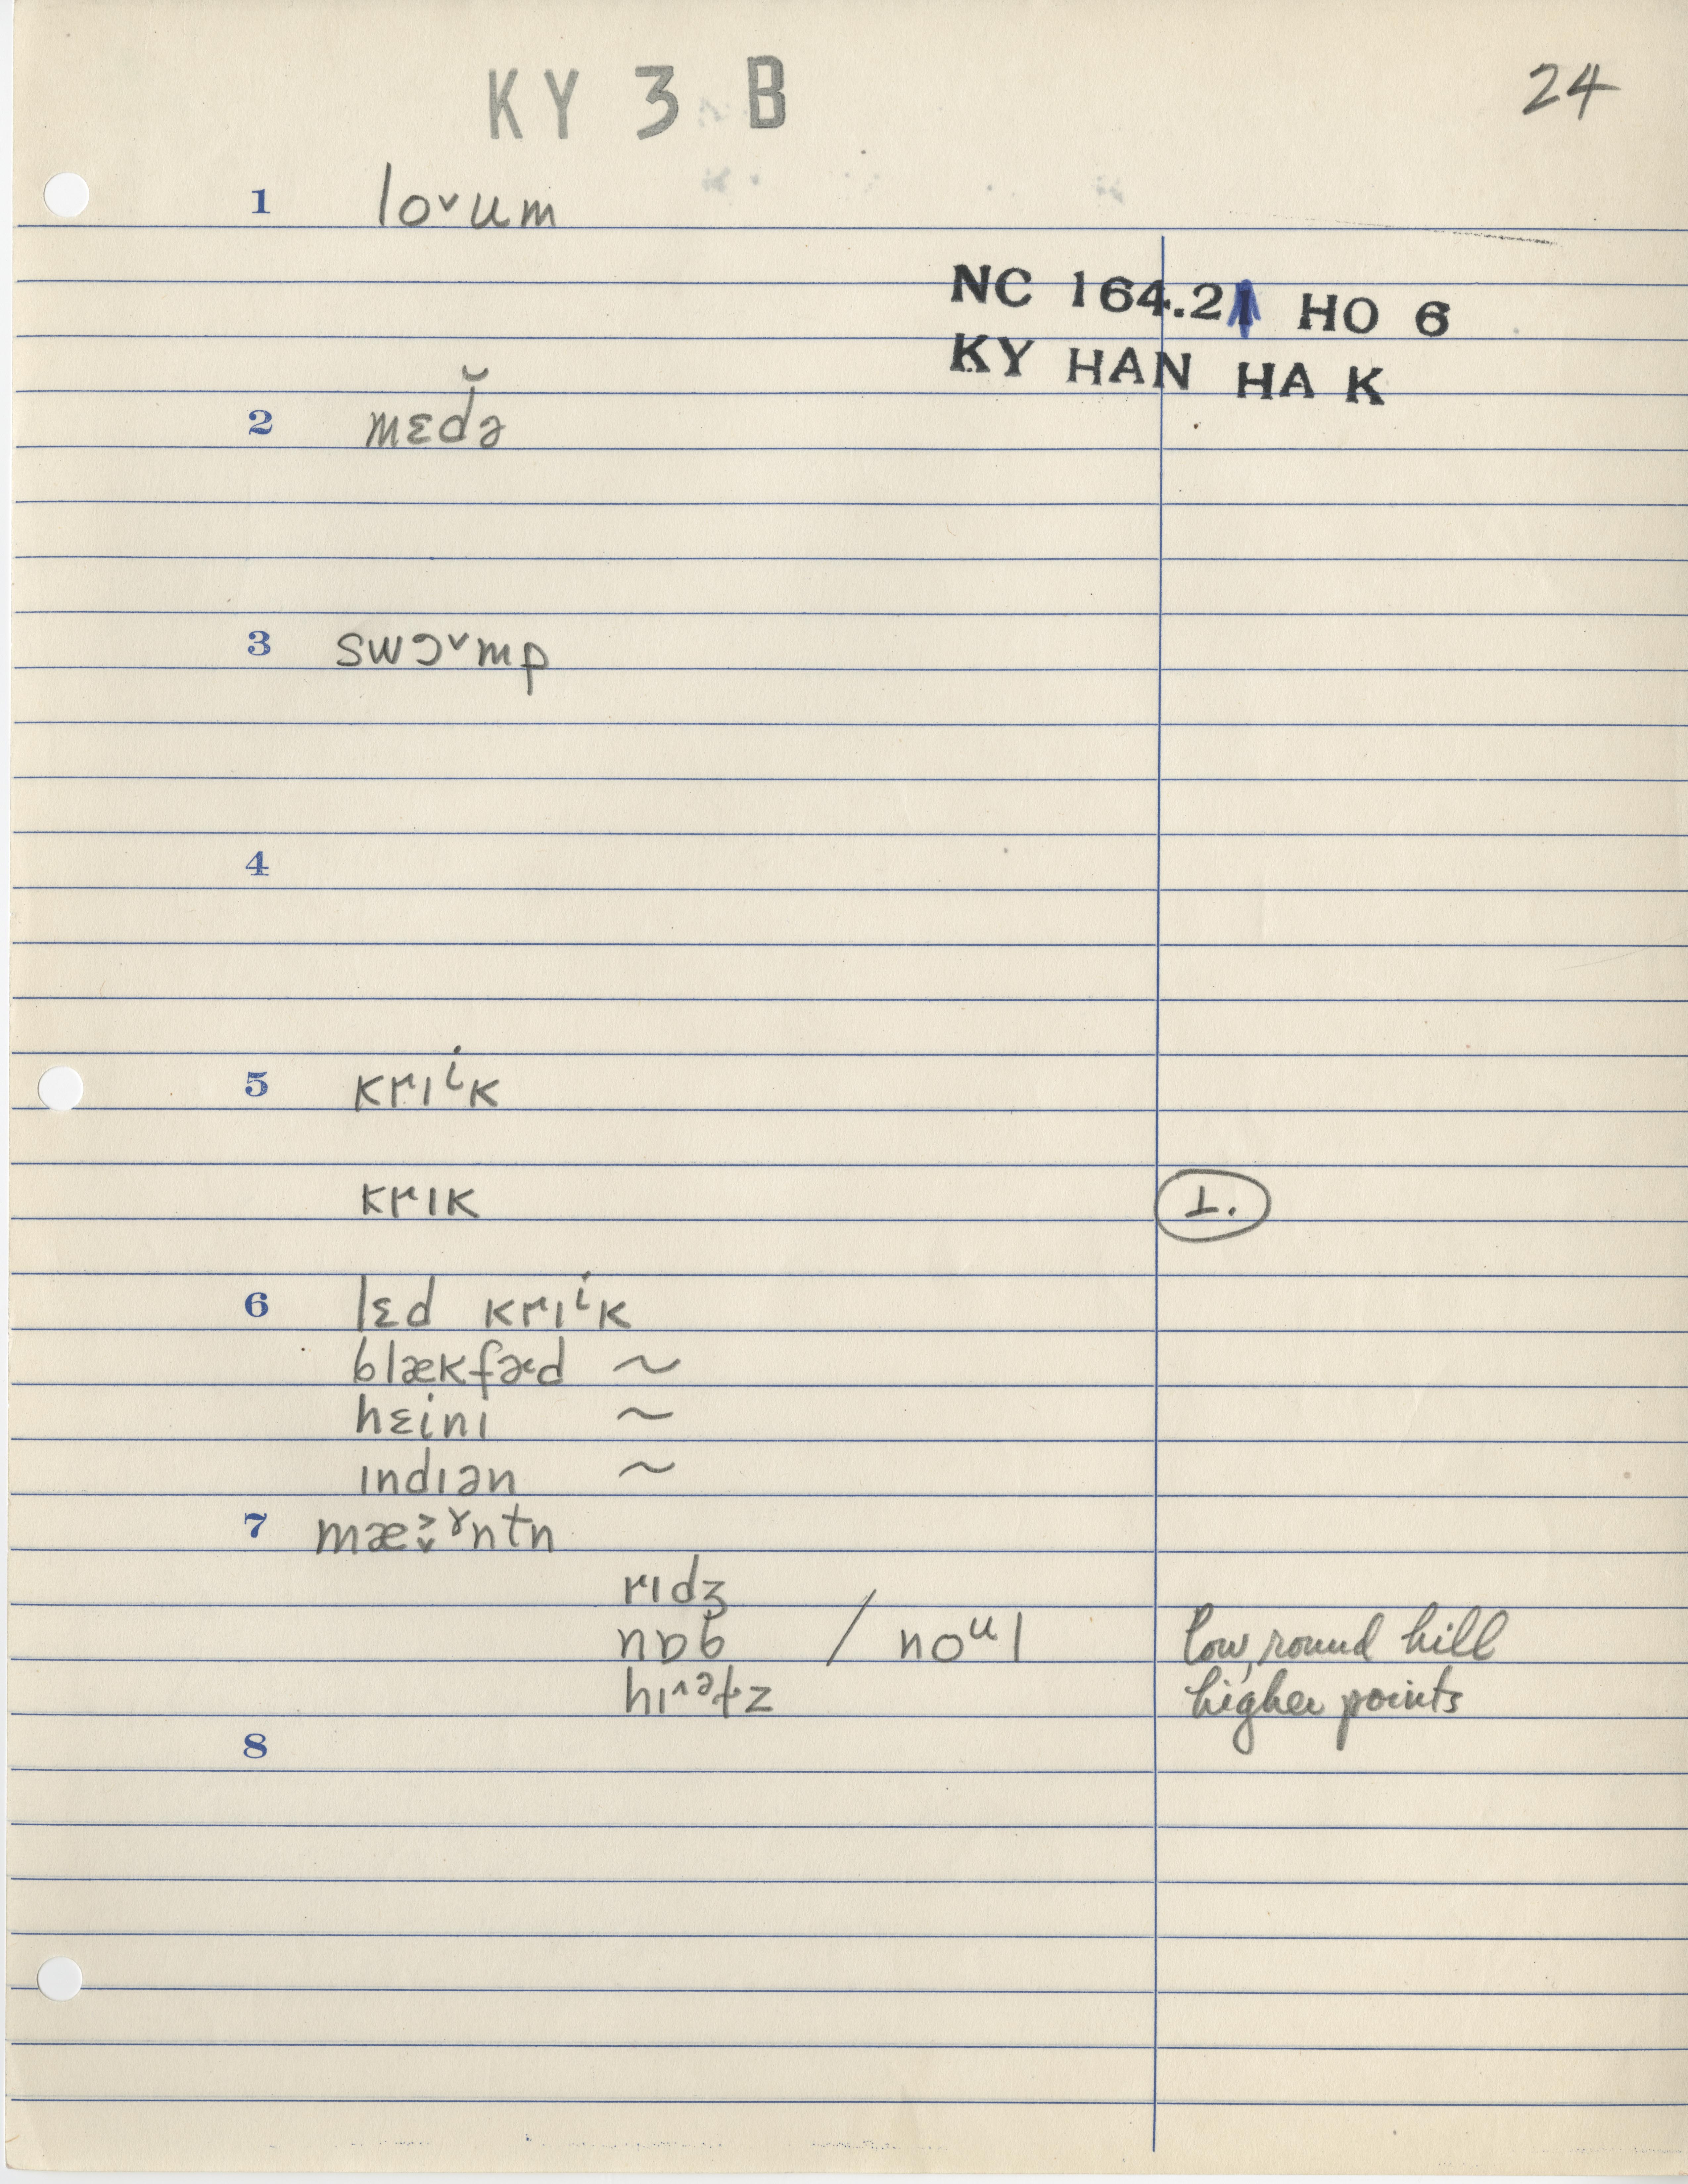 KY 3 B
24
1 loᵛum
NC 164.21 HO 6
KY HAN HA K
2 mɛd̆ə
3 swɔᵛmp
4
5 krɪⁱk
krɪk
⊥.
6 lɛd krɪⁱk
blækfɚd ~
hɛini ~
ɪndɪən ~
7 ntn
rɪdʒ
nɒb / noᵘl low, round hill
higher points
8